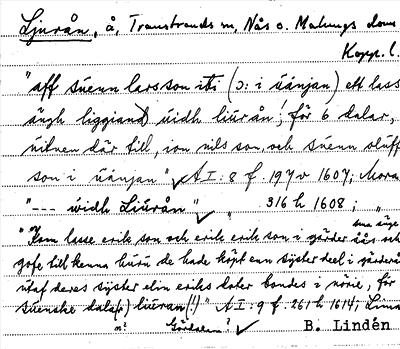 Ljurån, å, Transtrands sn, Nås o. Malungs doms
Kopp. l.
"aff suenn larsson iti (ɔ: i uänjan) ett lass
ängh liggiand) uidh liurån! för 6 dalar,
uitnen där till, ion nils son och suenn oluff
son i uänjan" A I: 8 f. 197v 1607; Mora
"--- widh Liurån" " 316 h 1608;
"Kom lasse erik son och erik erik son i gärder
gofe till kenna huru de hade köpt enn syster deel i
utaf deres syster elin eriks doter bondes i nörie, för
suenske dala(r) liuran(!)" A I: 9 f. 261 h 1614; Lima
B. Lindén